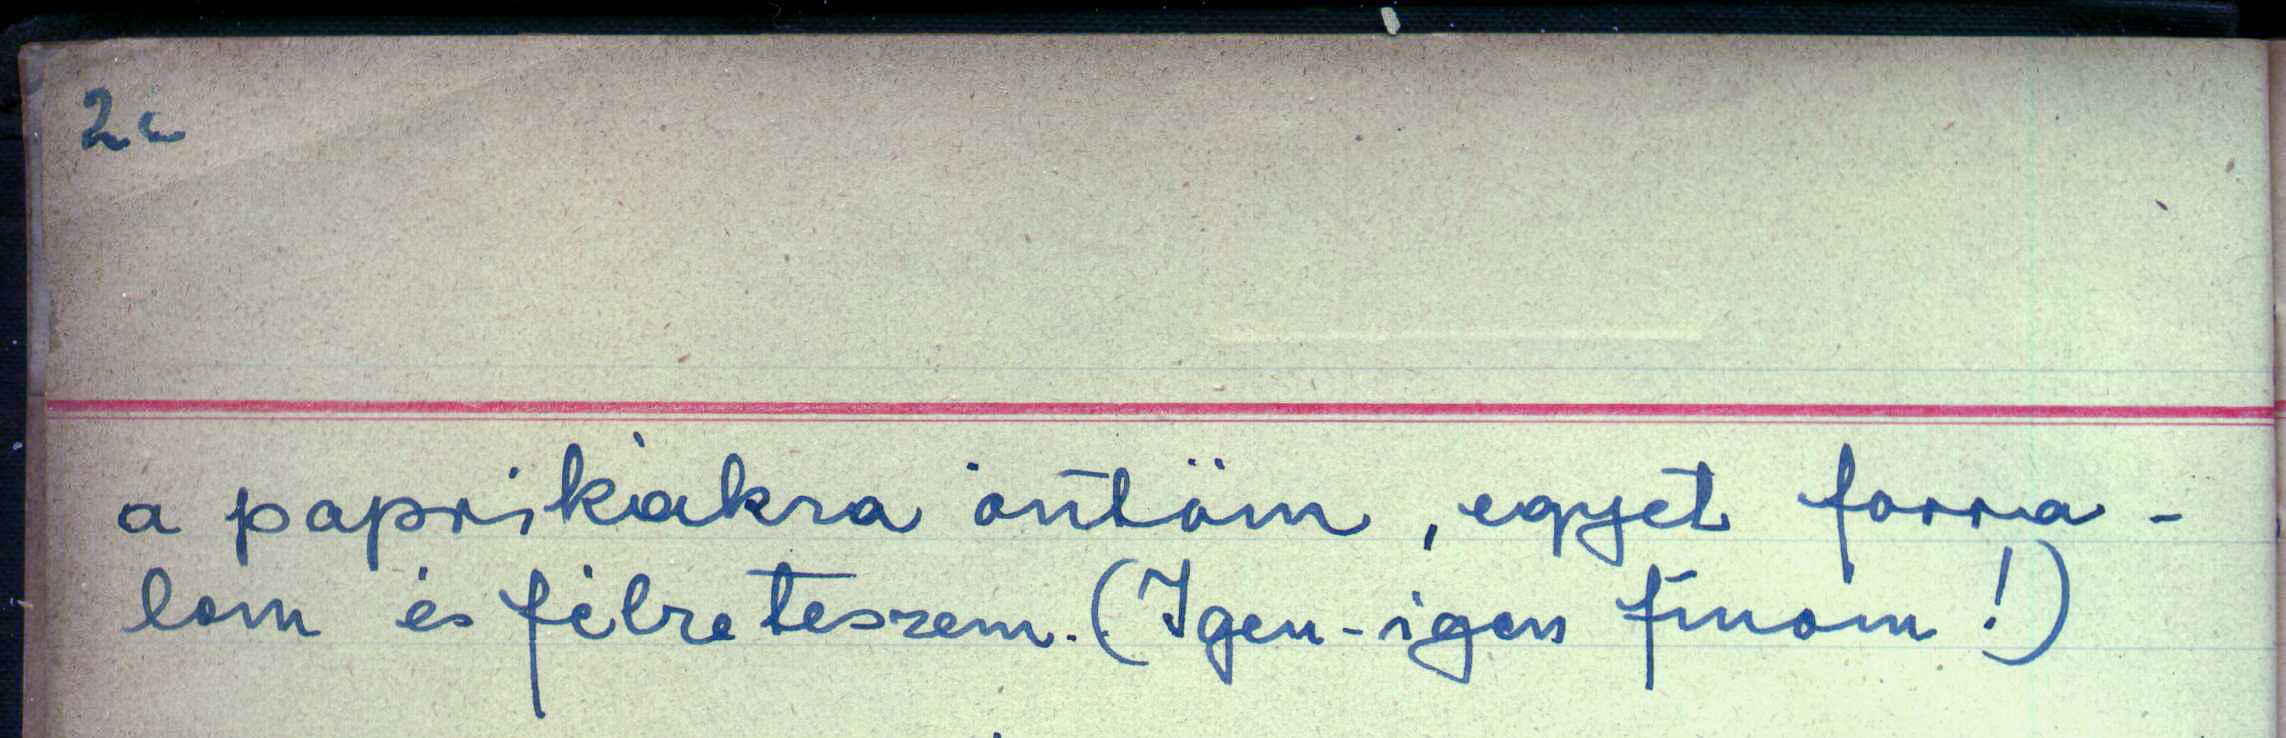 a paprikákra öntöm, egyet forra-
lom és félre teszem. (Igen-igen finom!)